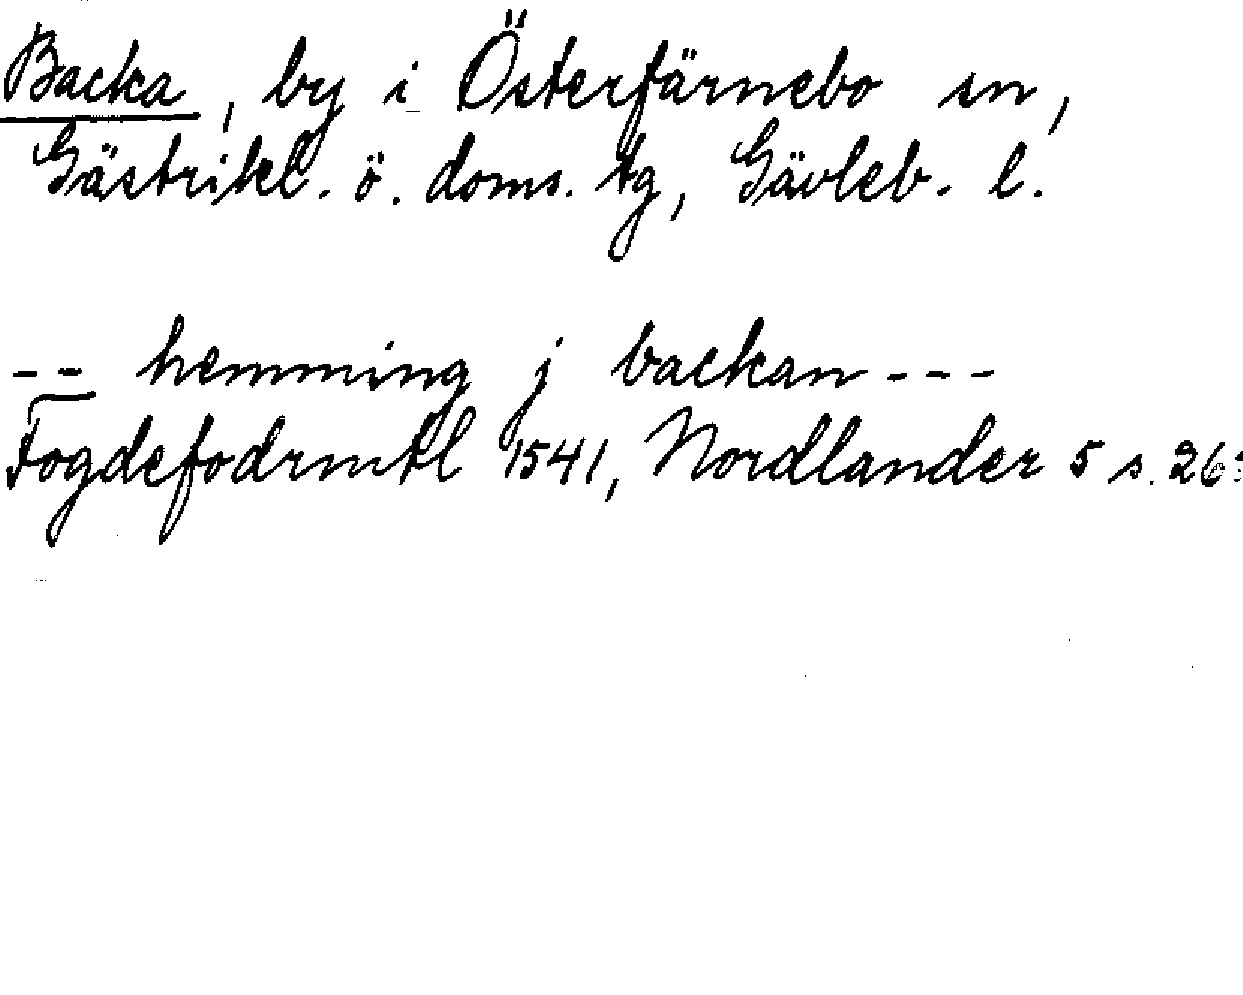 Backa, by i Österfärnebo sn,
Gästrikl. ö. doms. tg, Gävleb. l.
-- hemming j backan ---
Fogdefodrmtl 1541, Nordlander 5 s. 26